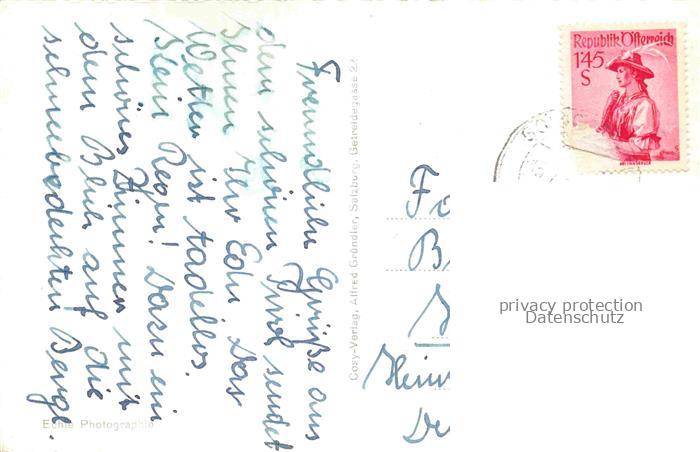 Freundliche Grüße aus
dem schönen Tirol sendet
Ihnen Ihr Edu. Das
Wetter ist tadellos.
Kein Regen! Dazu ein
schönes Zimmer mit
dem Blick auf die
schneebedeckten Berge.
Echte Photographie
Cosy-Verlag, Alfred Gründler, Salzburg, Getreidegasse 22
Republik Österreich
1'45
S
privacy protection
Datenschutz